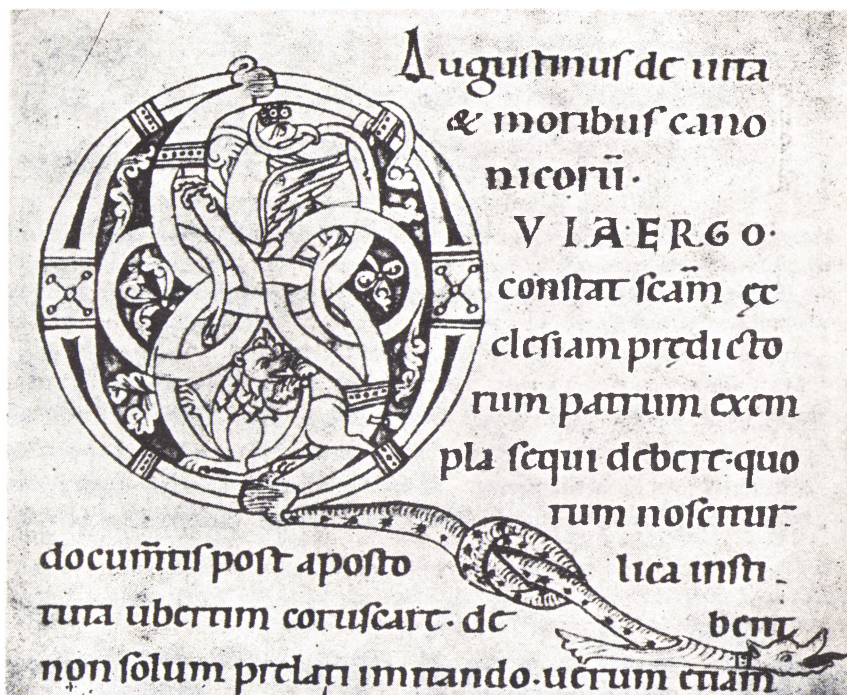 Augustinus de uita
& moribus cano
nicorū.
VIA·ERGO·
constat scām ęc
clesiam prędicto
rum patrum exem
pla sequi debere·quo
rum noscitur
documtis post aposto lica insti-
tuta ubertim coruscare. de bent
non solum prelati imitando. uerum etiam